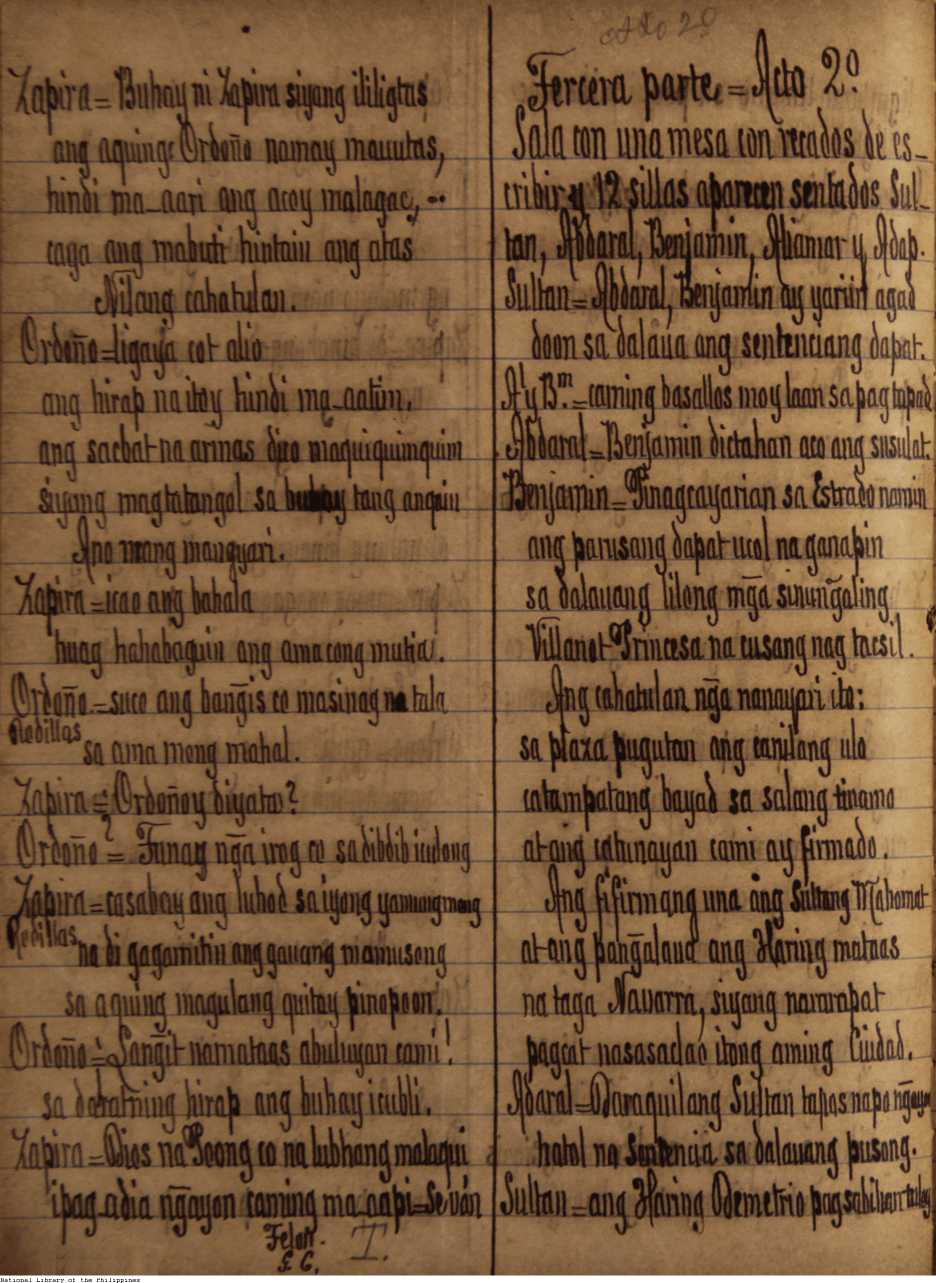 Zapira = Buhay ni Zapira siyang ililigtas
ang aquing Ordoño namay mauutas,
hindi ma-aari ang acoy malagac, --
caga ang mabuti hintain ang atas
Nilang cahatulan.
Ordoño = ligaya cot alio
ang hirap na itoy hindi ma-aatim.
ang sacbat na armas dico maquiquimquim
siyang magtatangol sa buhay tang anquin
Ano mang mangyari.
Zapira = icao ang bahala
huag hahabaguin ang ama cong mutia.
Ordoño = suco ang bangis co masinag na tala
Rodillas
sa ama mong mahal.
Zapira = Ordoñoy diyata?
Ordoño = Tunay nga irog co sa dibdib iculong
Zapira = casabay ang luhod sa iyong yamung mong
Rodillas
na di gagamitin ang gauang mamusong
sa aquing magulang quitay pinopoon.
Ordoño = Langit na mataas abuluyan cami!
sa daratning hirap ang buhay icubli.
Zapira = Dios na Poong co na lubhang malaqui
ipag-adia ngayon caming ma-aapi = Se ván
Telon.
T.
Acto 2º
Tercera parte = Acto 2º.
Sala con una mesa con recados de es-
cribir y 12 sillas aparecen sentados Sul-
tan, Abdaral, Benjamin, Aliamar y Adap.
Sultan = Abdaral, Benjamin ay yariin agad
doon sa dalaua ang sentenciang dapat.
A. y B.ⁿ = caming basallos moy laan sa pag tupad
Abdaral = Benjamin dictahan aco ang susulat.
Benjamin = Pinagcayarian sa Estrado namin
ang parusang dapat ucol na ganapin
sa dalauang lilong mga sinungaling
Villanot Princesa na cusang nag tacsil.
Ang cahatulan nga nanayari ito:
sa plaza pugutan ang canilang ulo
catampatang bayad sa salang tinamo
at ang catunayan cami ay firmado.
Ang fifirmang una ang Sultang Mahomat
at ang pangalaua ang Haring mataas
na taga Navarra, siyang nararapat
pagcat nasasaclao itong aming Ciudad.
Abdaral = Daraquilang Sultan tapos napo ngayon
hatol na Sentencia sa dalauang pusong.
Sultan = ang Haring Demetrio pagsabihan